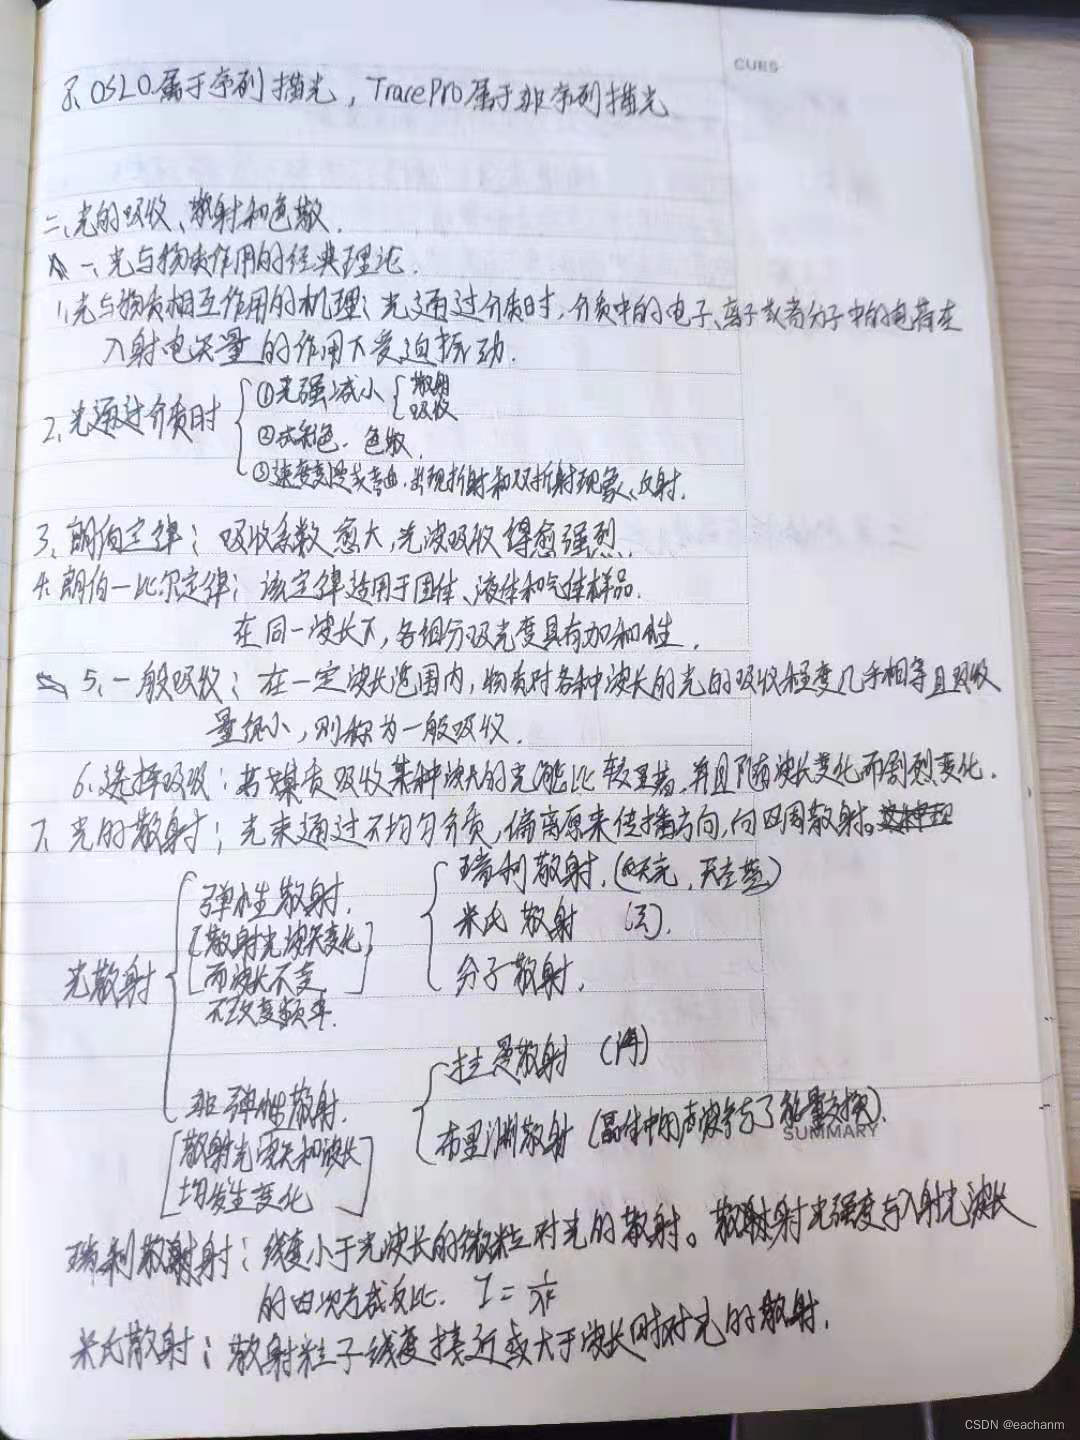 CUES
8、OSLO属于序列描光，TracePro属于非序列描光
二、光的吸收、散射和色散.
☆ 一、光与物质作用的经典理论.
1、光与物质相互作用的机理：光通过介质时，介质中的电子、离子或者分子中的电荷在
入射电矢量的作用下受迫振动.
2、光通过介质时
①光强减小 散射 吸收
②水彩色. 色散.
③速度变慢或弯曲.出现折射和双折射现象、反射.
3、朗伯定律：吸收系数愈大,光波吸收得愈强烈.
4、朗伯一比尔定律：该定律适用于固体、液体和气体样品.
在同一波长下,各组分吸光度具有加和性.
☆ 5、一般吸收：在一定波长范围内，物质对各种波长的光的吸收程度几乎相等且吸收
量很小，则称为一般吸收.
6、选择吸收：若媒质吸收某种波长的光能比较显著,并且随波长变化而剧烈变化.
7、光的散射；光束通过不均匀介质，偏离原来传播方向,向四周散射。
光散射
弹性散射.
[散射光波矢变化
而波长不变]
不改变频率.
瑞利散射.(天亮，天空蓝)
米氏散射 (云).
分子散射.
非弹性散射.
[散射光波矢和波长
均发生变化]
拉曼散射 (海)
布里渊散射 (晶体中的声波参与了能量交换).
SUMMARY
瑞利散射射：线度小于光波长的微粒对光的散射。散射射光强度与入射光波长
的四次方成反比. I = 1/λ⁴
米氏散射；散射粒子线度接近或大于波长时对光的散射.
CSDN @eachanm